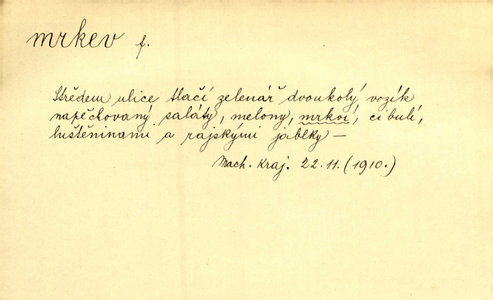 mrkev f.
Středem ulice tlačí zelenář dvoukolý vozík
napěchovaný saláty, melony, mrkví, cibulí,
luštěninami a rajskými jablky —
Mach. Kraj. 22.11. (1910.)